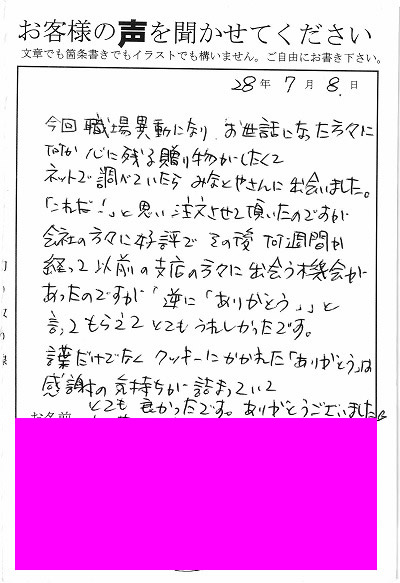 お客様の声を聞かせてください
文章でも箇条書きでもイラストでも構いません。ご自由にお書き下さい。
28年 7月 8日
今回 職場異動になり、お世話になった方々に
何か 心に残る贈り物がしたくて
ネットで調べていたら みなとやさんに出会いました。
「これだ！」と思い 注文させて頂いたのですが
会社の方々に好評で その後 何週間か
経って 以前の支店の方々に出会う機会が
あったのですが 「逆に「ありがとう」」と
言ってもらえて とても うれしかったです。
言葉だけでなく クッキーにかかれた「ありがとう」は
感謝の 気持ちが 詰まっていて
とても 良かったです。ありがとうございました
お名前